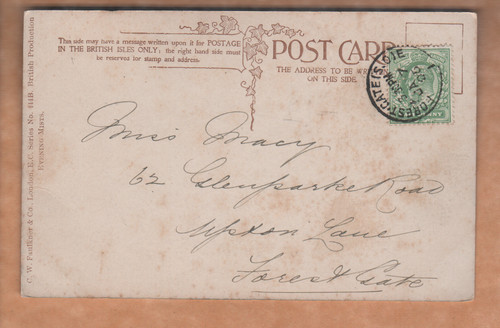 This side may have a message written upon it for POSTAGE
IN THE BRITISH ISLES ONLY; the right hand side must
be reserved for stamp and address.
POST CARD
THE ADDRESS TO BE WR
ON THIS SIDE.
FOREST GATE
Miss Macy
62 Glenparke Road
Upton Lane
Forest Gate
C. W. Faulkner & Co. London, E.C. Series No. 614B. British Production
EVENING MISTS.